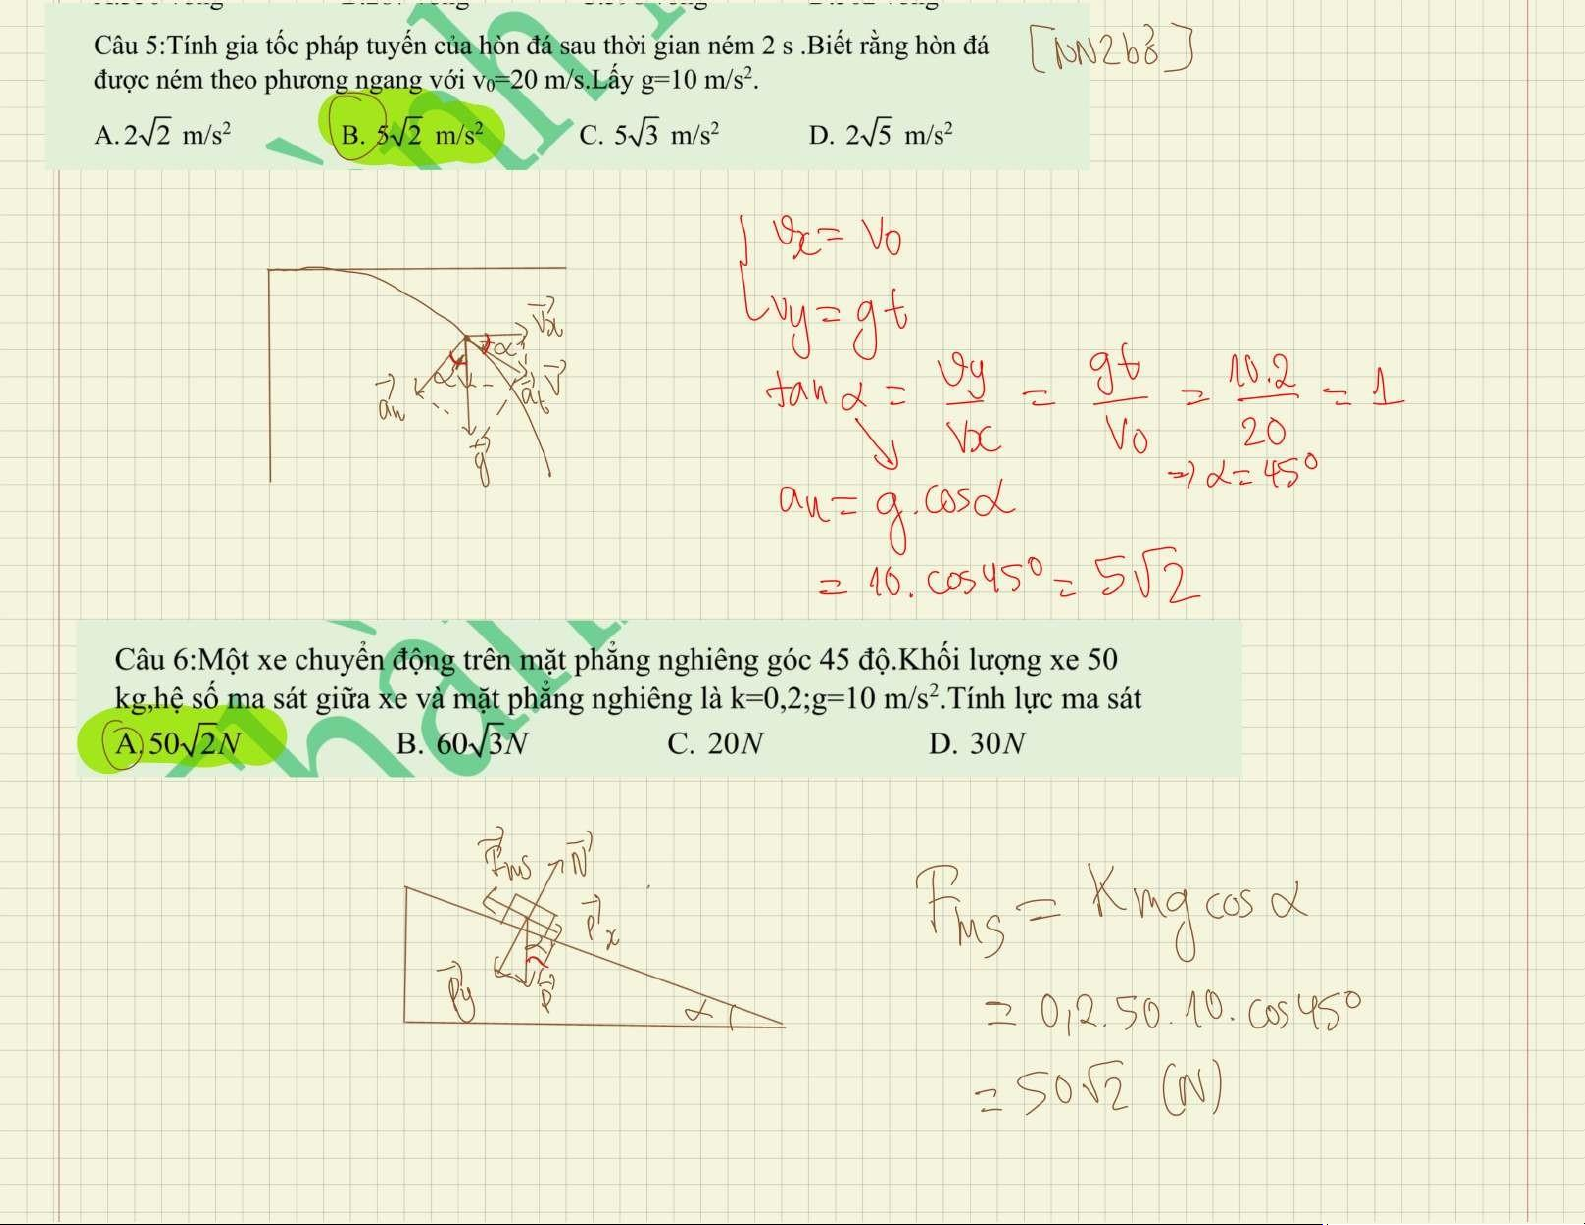 Câu 5:Tính gia tốc pháp tuyến của hòn đá sau thời gian ném 2 s .Biết rằng hòn đá
[NN2b3]
được ném theo phương ngang với v₀=20 m/s.Lấy g=10 m/s².
A. 2√2 m/s² B. 5√2 m/s² C. 5√3 m/s² D. 2√5 m/s²
vx = v0
vy = gt
tan α = vy/vx = gt/v0 = 10.2/20 = 1
⇒ α = 45°
an = g.cosα
= 10. cos45° = 5√2
vx
α
α
an
at
v
g
Câu 6:Một xe chuyển động trên mặt phẳng nghiêng góc 45 độ.Khối lượng xe 50
kg,hệ số ma sát giữa xe và mặt phẳng nghiêng là k=0,2;g=10 m/s².Tính lực ma sát
A. 50√2N B. 60√3N C. 20N D. 30N
Fms N
Px
Py
P
α
Fms = Kmg cos α
= 0,2.50.10. cos45°
= 50√2 (N)